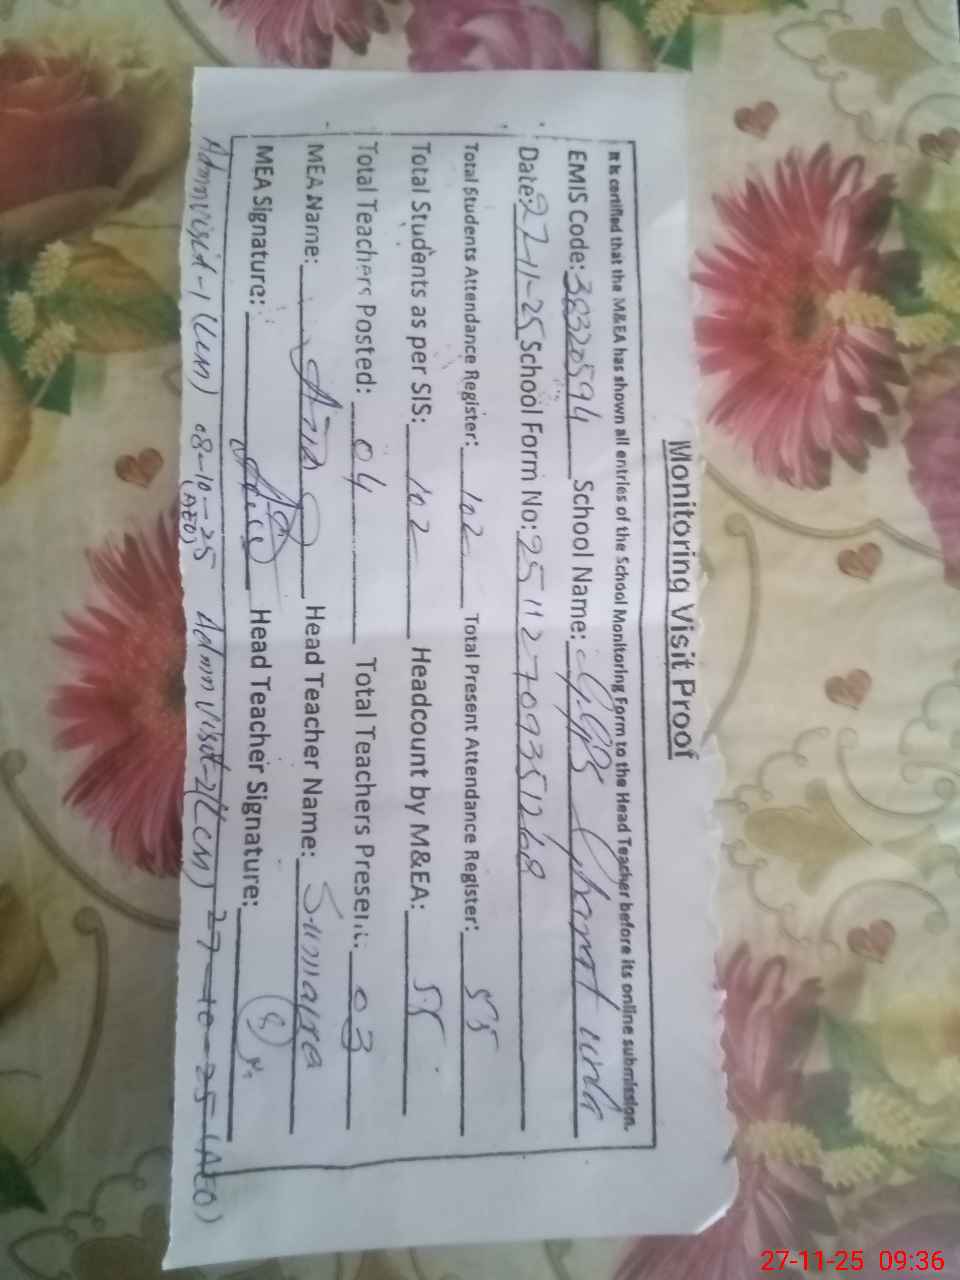 Monitoring Visit Proof
It is certified that the M&EA has shown all entries of the School Monitoring Form to the Head Teacher before its online submission.
EMIS Code: 38320594 School Name: GGPS Charat
Date: 27-11-25 School Form No: 2511270935126
Total Students Attendance Register: 102 Total Present Attendance Register: 55
Total Students as per SIS: 102 Headcount by M&EA: 55
Total Teachers Posted: 04 Total Teachers Present: 03
MEA Name: Head Teacher Name: Sumaira
MEA Signature: Head Teacher Signature:
Admn Visit-1 08-10-25 Admn Visit-2 27-10-25 (AEO)
(AEO)
27-11-25 09:36